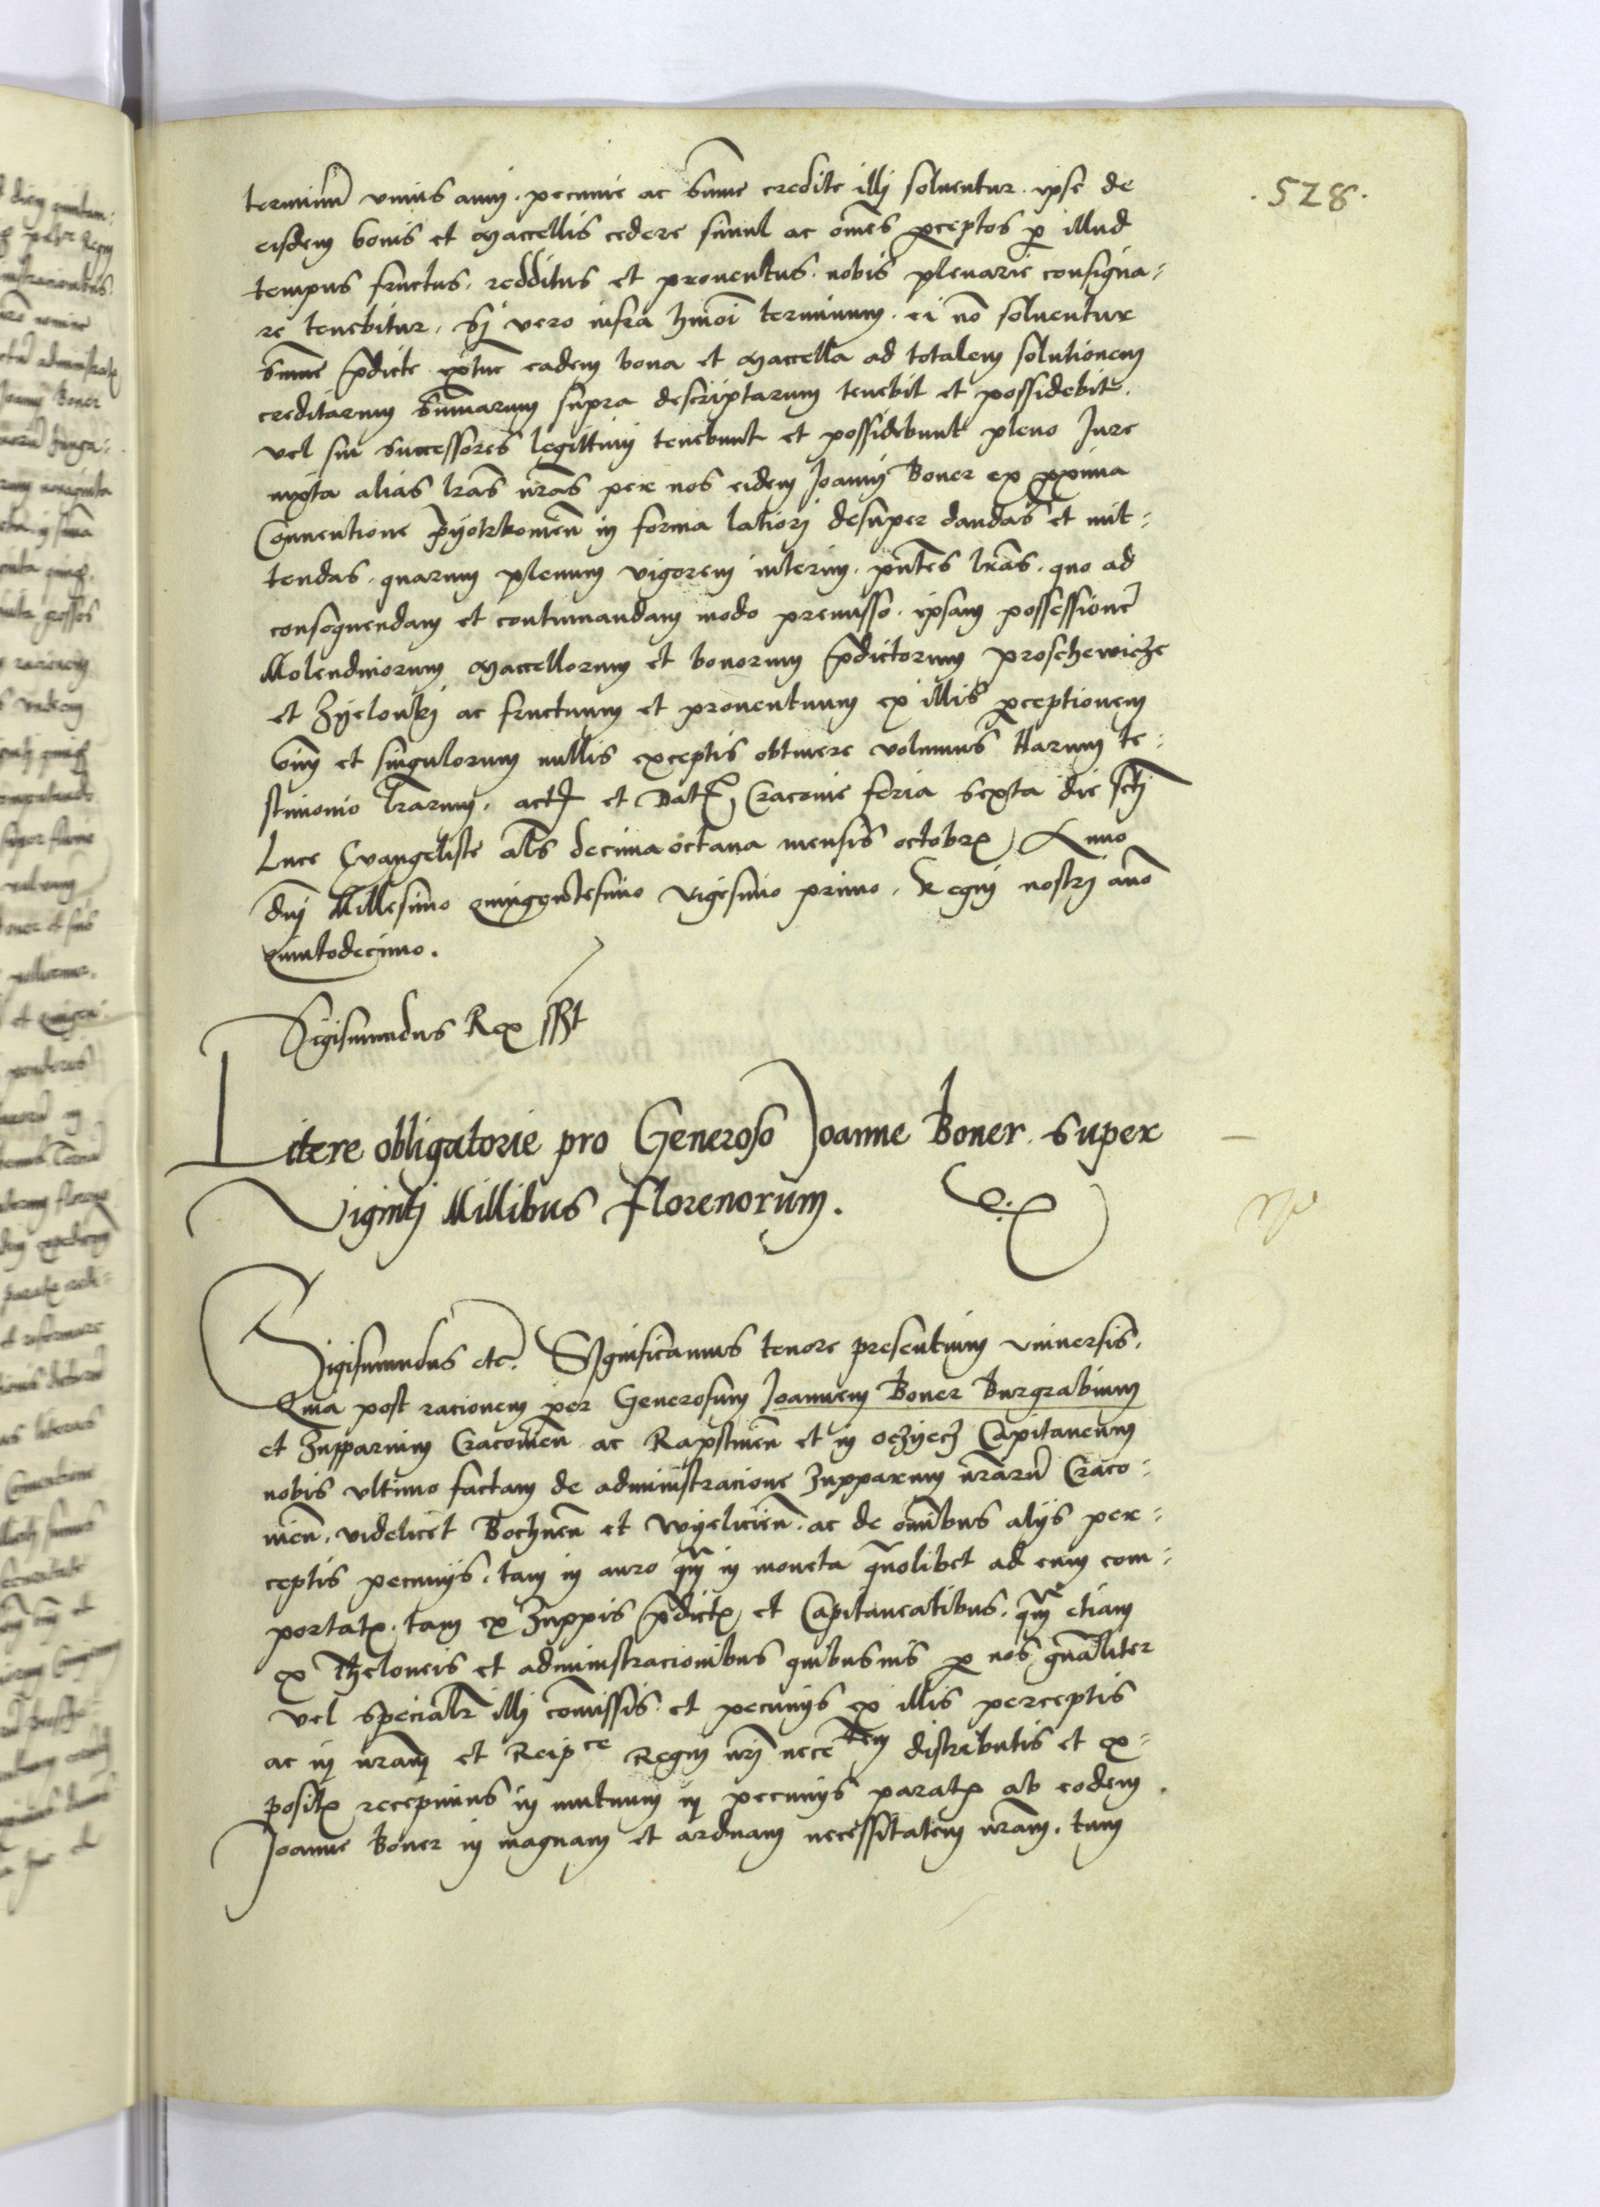 .528.
terminu͂ vnius anni. pecunie ac sume credite illj soluentur. ipse de
eisdem bonis et maccellis cedere simul ac om̃es perceptos per illud
tempus fructus. redditus et prouentus. nobis plenarie consigna-
re tenebitur. Sj vero infra hmõi terminum. ei nõ soluentur
sume p̃dicte extunc eadem bona et maccella ad totalem solutionem
creditarum sum̃arum supra descriptarum tenebit et possidebit.
vel sui successores legittimj tenebunt et possidebunt pleno Jure
iuxta alias lr̃as nr̃as per nos eidem Joannj Boner ex proxima
Conuentione Pyotrkouien̄ in forma latiorj desuper dandas et mit-
tendas. quarum plenum vigorem interim. pñtes lr̃as. quo ad
consequendam et continuandam modo premisso. ipsam possessione͂
Molendinorum maccellorum et bonorum p̃dictorum Proschewicze
et Zyelonkj ac fructuum et prouentuum ex illis perceptionem
om̃i et singulorum nullis exceptis obtinere volumus Harum te-
stimonio lr̃arum. act̃ et Dat̃ Cracouie feria sexta die sctj
Luce Evangeliste als decimaoctaua mensis octobr̃ Anno
dñj Millesimo quingentesimo vigesimo primo. Regnj nostrj año
quintodecimo.
Sigismundus Rex sst
Litere obligatorie pro Generoso Joanne Boner super
Vigintj Millibus florenorum.
Sigismundus etc. Significamus tenore presentium vniuersis.
Quia post racionem per Generosum Joannem Boner Burgrabium
et Zupparium Cracouien̄ ac Rapstinen̄ et in oczyecz Capitaneum
nobis vltimo factam de administracione Zupparum nr̃aru͂ Craco-
uien̄. videlicet Bochnen̄ et Wyelicien̄. ac de om̃ibus alijs per-
ceptis pecunijs. tam in auro q̃m in moneta q̃nolibet ad eum com-
portat̃. tam ex Zuppis p̃dict̃ et Capitaneatibus. q̃m etiam
ex theloneis et administracionibus quibusuis per nos gñaliter
vel specialr̃ illj com̃issis et pecunijs ex illis perceptis
ac in nr̃am et Reipce Regnj nr̃j necetem distributis et ex-
posit̃ recepimus in mutuum in pecunijs parat̃ ab eodem
Joanne Boner in magnam et arduam necessitatem nr̃am. tum